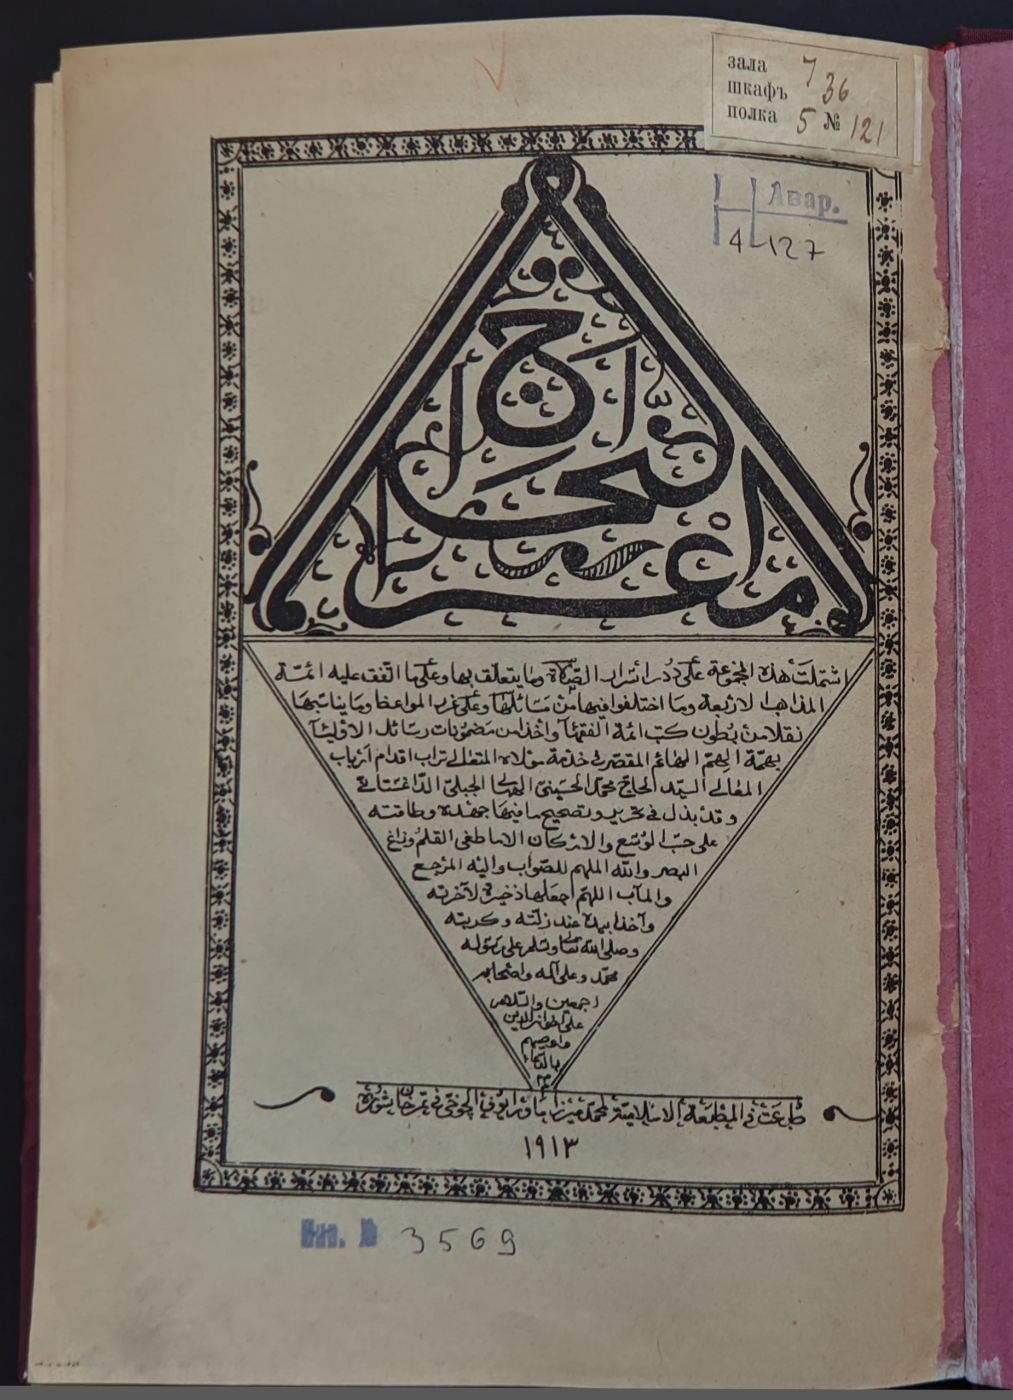 зала 7
шкафъ 36
полка 5 № 121
Авар.
4-127
اشتملت هذه المجموعة على درر اسرار الصلاة وما يتعلق بها وعلى ما اتفق عليه ائمة
المذاهب الاربعة وما اختلفوا فيها من مسائلها وعلى غرر المواعظ وما يناسبها
نقلا من بطون كتب ائمة الفقهاء واخذا من مضمونات رسائل الاولياء
بهمة الهائم المقصر في خدمة مولاه المتعالى تراب اقدام ارباب
المعالى السيد الحاج محمد الحسينى الجبلى الداغستانى
وقد بذل فى تحريره وتصحيح ما فيها جهده وطاقته
على حسب الوسع والامكان الا ما طغى القلم وزاغ
البصر والله الملهم للصواب واليه المرجع
والمآب اللهم اجعلها ذخيرة لآخرته
وآخذا بيده عند زلته وكربته
وصلى الله تعالى وسلم على رسوله
محمد وعلى آله واصحابه
اجمعين والسلام
طبعت فى المطبعة الاسلامية لمحمد ميرزا ماورايوف الچوخى فى تمرخان شوره
١٩١٣
Ин. № 3569